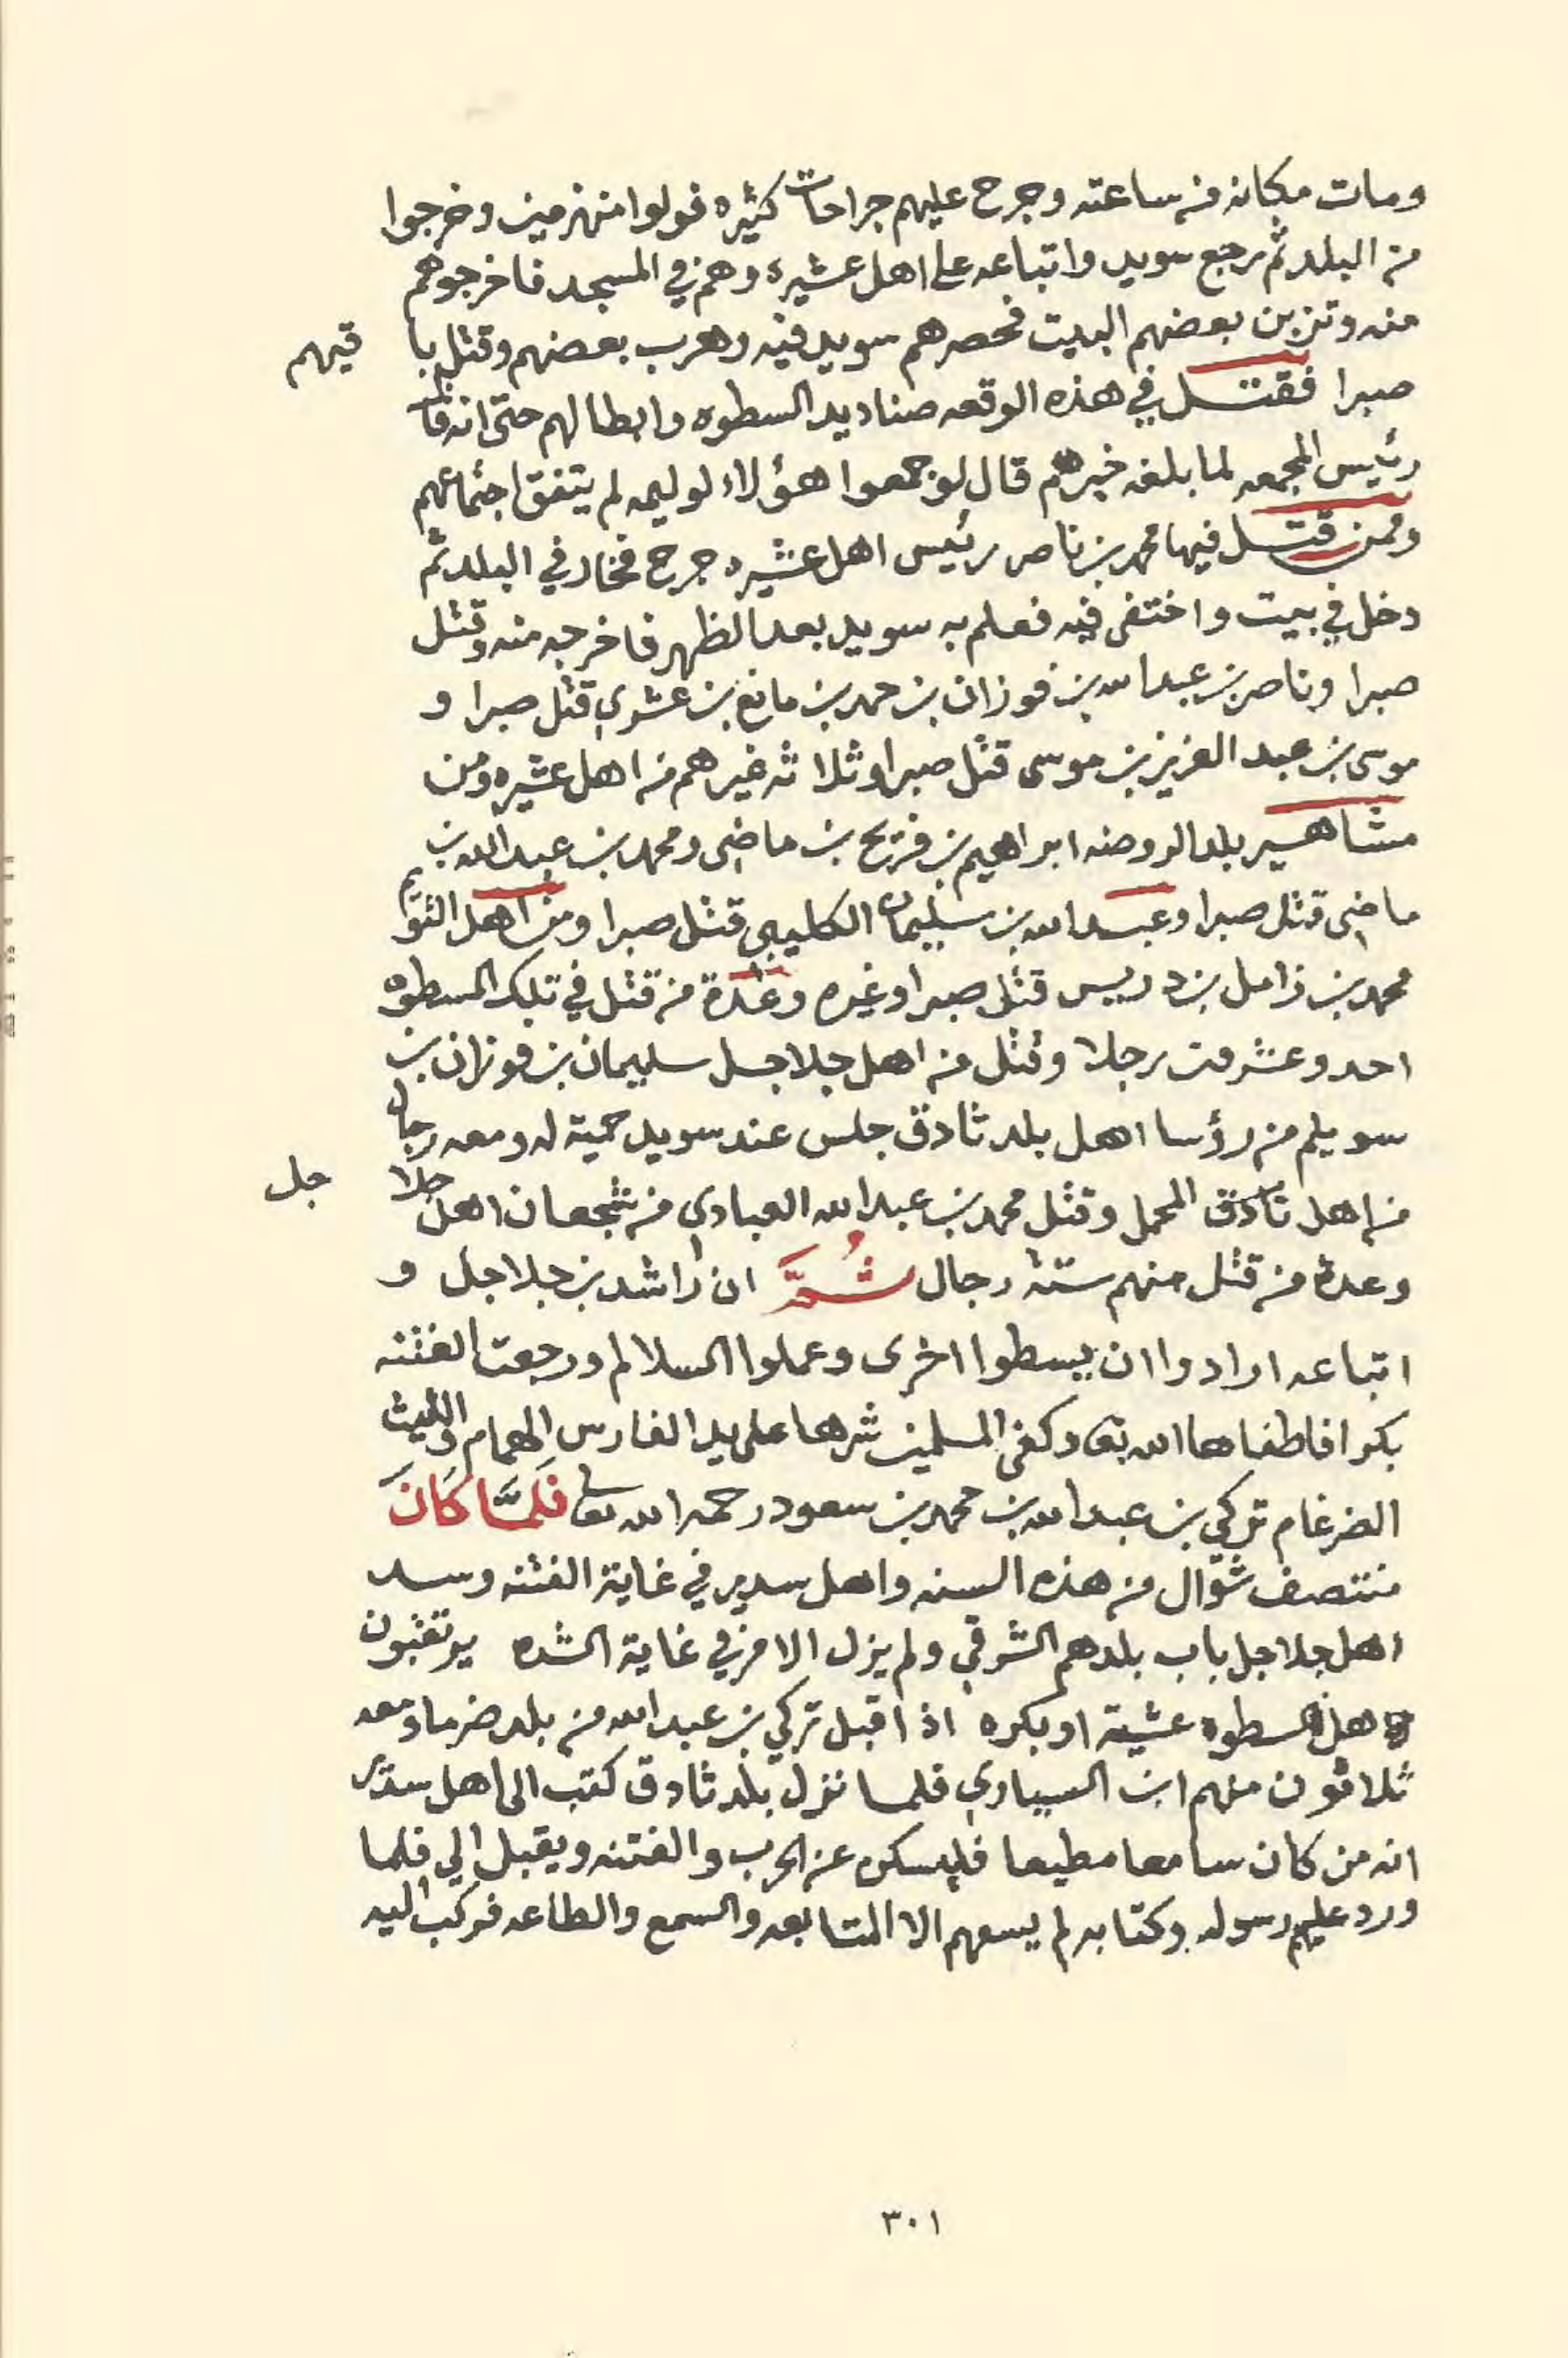 ومات مكانه من ساعته وجرح عليهم جراحات كثيره فولوا منهزمين وخرجوا
من البلد ثم رجع سويد واتباعه على اهل عشيره وهم في المسجد فاخرجوهم
منه وتزبن بعضهم البيت فحصرهم سويد فيه وهرب بعضهم وقتل باقيهم
صبرا فقتل في هذه الوقعه صناديد السطوه وابطالهم حتى انه قال
رئيس المجمعه لما بلغه خبرهم قال لو جمعوا هؤلاء لوليمه لم يتفق اجتماعهم
وممن قتل فيها محمد بن ناصر رئيس اهل عشيره جرح فخار في البلد ثم
دخل في بيت واختفى فيه فعلم به سويد بعد الظهر فاخرجه منه وقتل
صبرا وناصر بن عبدالله بن فوزان بن حمد بن مانع بن عشوي قتل صبرا و
موسى بن عبد العزيز بن موسى قتل صبرا وثلاثه غيرهم من اهل عشيره ومن
مشاهير بلد الروضه ابراهيم بن فريح بن ماضي ومحمد بن عبدالله بن
ماضي قتل صبرا وعبدالله بن سليمان الكليبي قتل صبرا ومن اهل التويم
محمد بن زامل بن دريس قتل صبرا وغيره وعدة من قتل في تلك السطوه
احد وعشرين رجلا وقتل من اهل جلاجل سليمان بن فوزان بن
سويلم من رؤسا اهل بلد ثادق جلس عند سويد حمية له ومعه رجال
من اهل ثادق المحمل وقتل محمد بن عبدالله العبادي من شجعان اهل جلاجل
وعدة من قتل منهم ستة رجال ثُمَّ ان راشد بن جلاجل و
اتباعه ارادوا ان يسطوا اخرى وعملوا السلالم ورجعت الفتنه
بكرا فاطفاها الله تعا وكفى المسلمين شرها على يد الفارس الهمام والليث
الضرغام تركي بن عبدالله بن محمد بن سعود رحمه الله تعا فَلَمَّا كَانَ
منتصف شوّال من هذه السنه واهل سدير في غاية الفتنه وسد
اهل جلاجل باب بلدهم الشرقي ولم يزل الامر في غاية الشده يرتقبون
اهل السطوه عشية او بكره اذا اقبل تركي بن عبدالله من بلد ضرما ومعه
ثلاثون منهم ابن السياري فلما نزل بلد ثادق كتب الى اهل سدير
انه من كان سامعا مطيعا فليمسك عن الحرب والفتنه ويقبل الي فلما
ورد عليهم رسوله وكتابه لم يسعهم الا المتابعه والسمع والطاعه فركب اليه
٣٠١